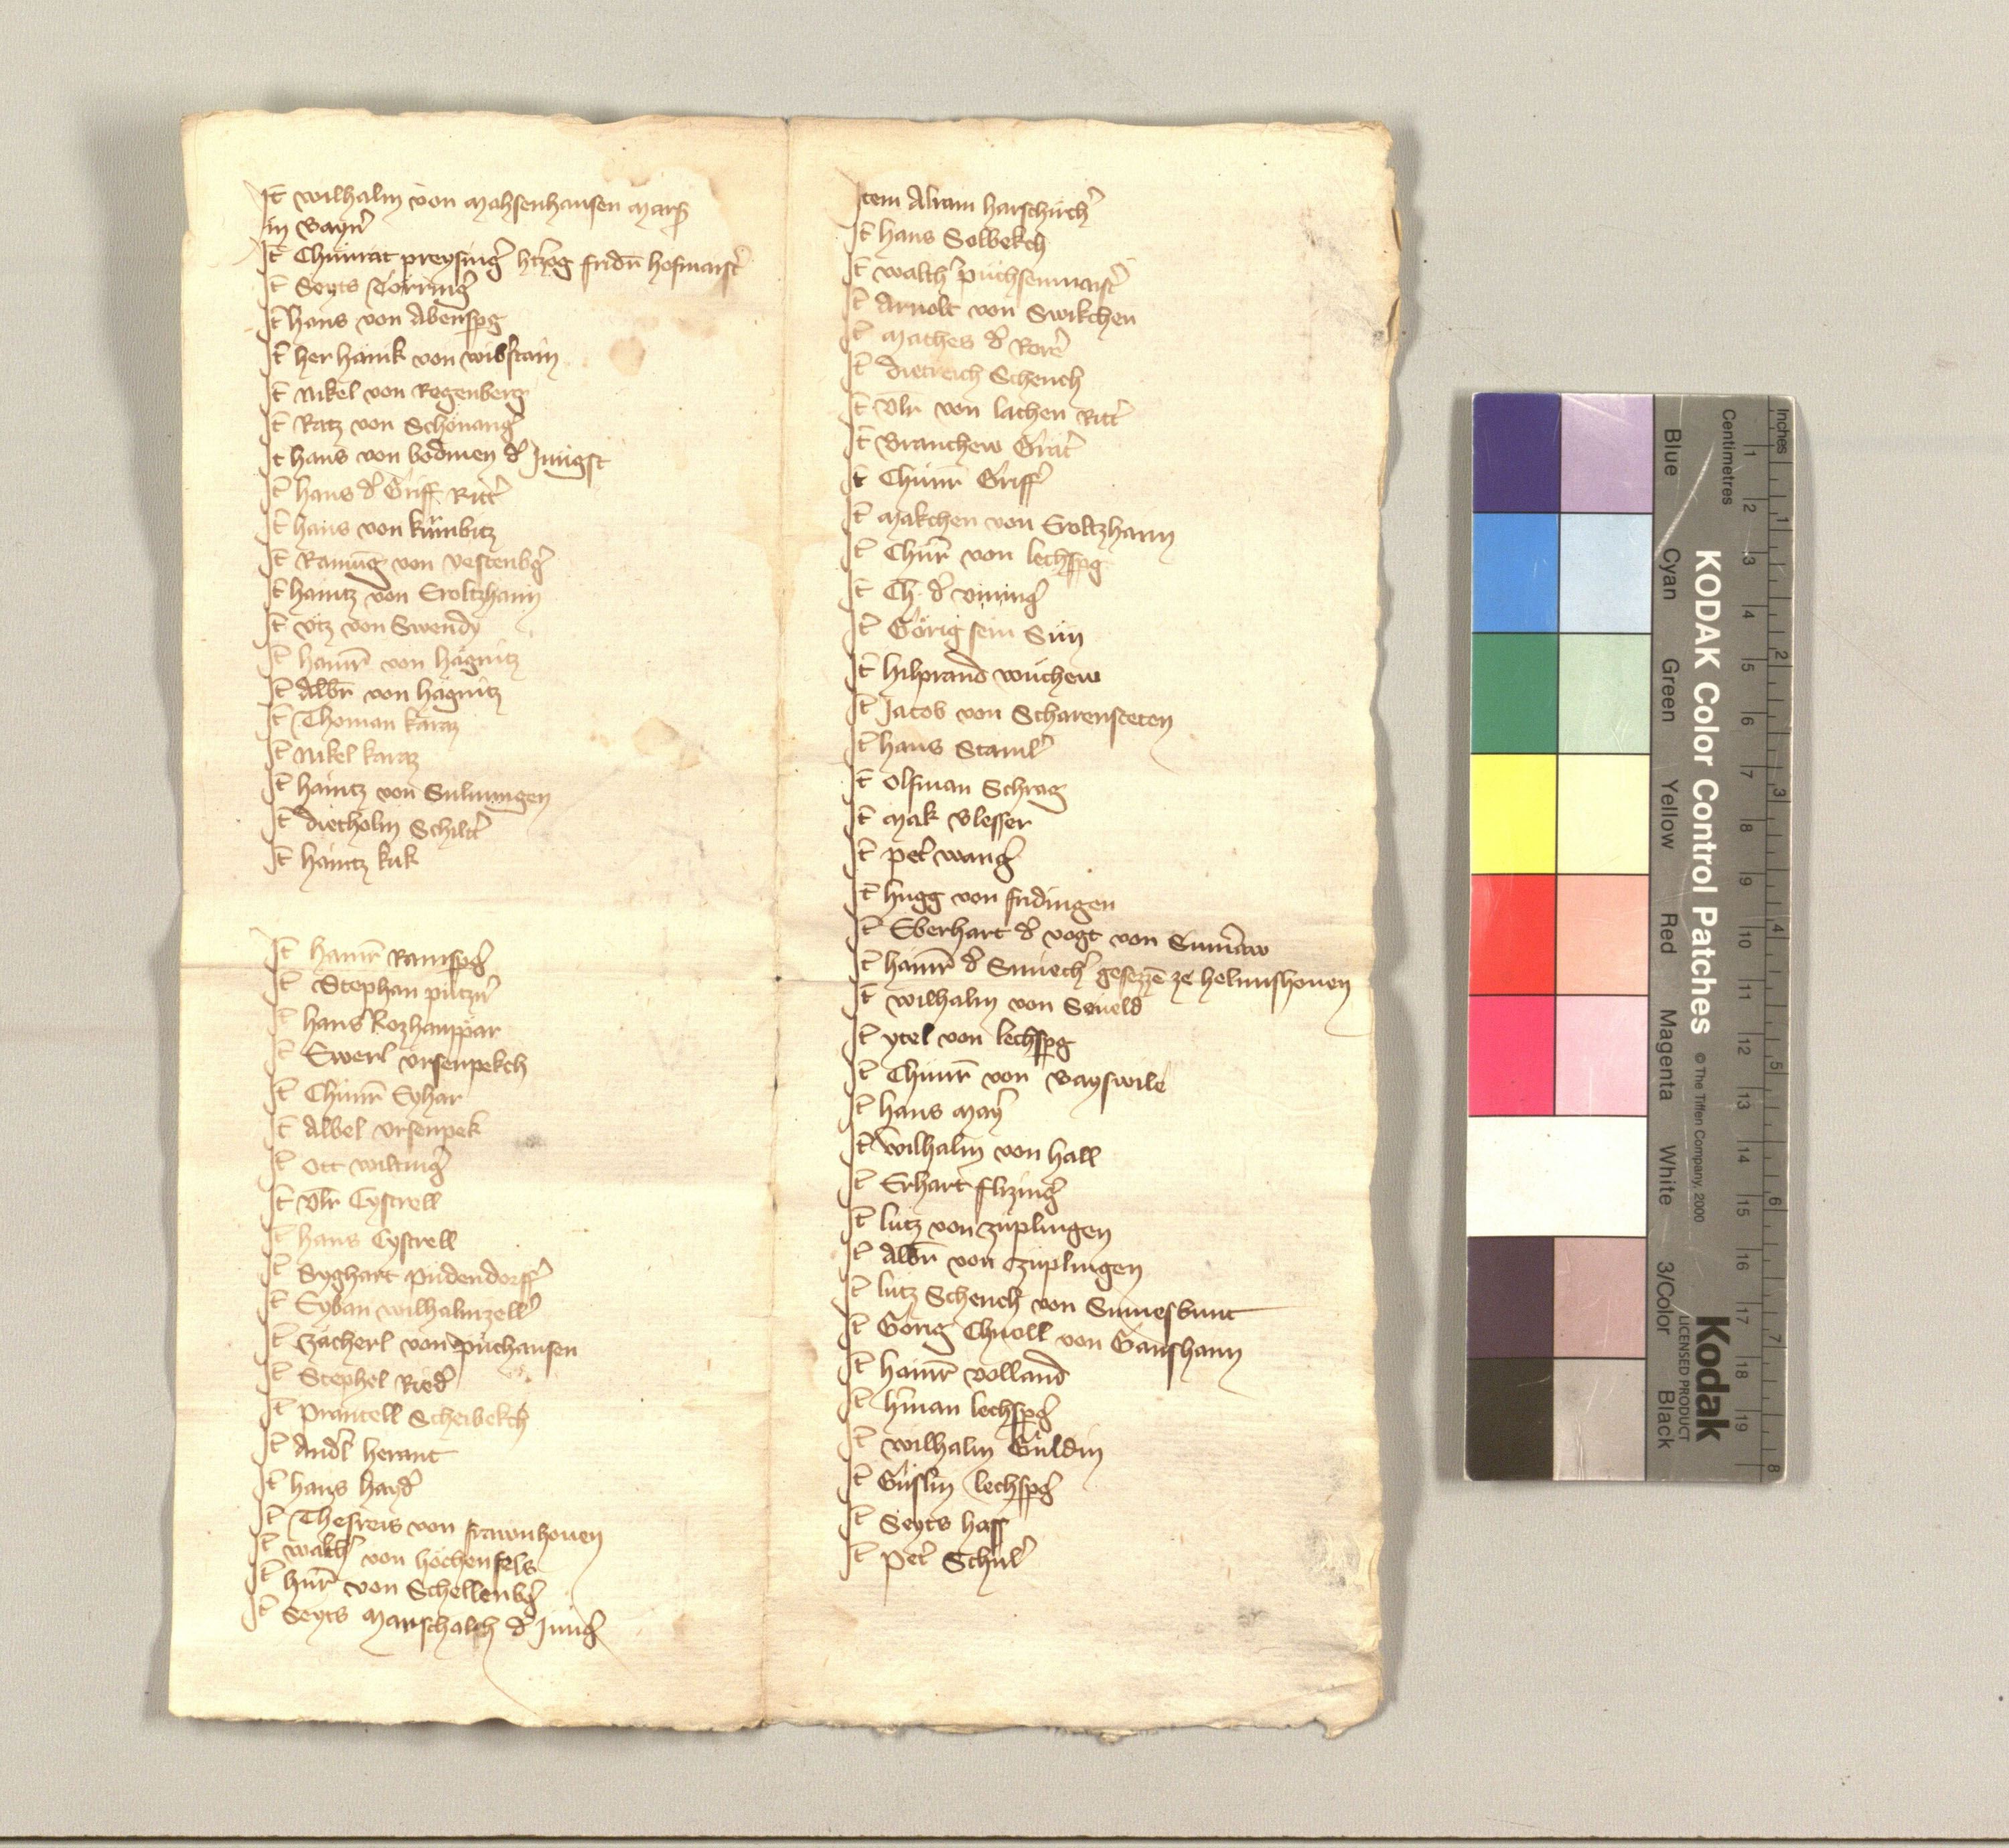 It wilhalm von Mahsenhausen Marß
in Bayrn
It Chunrat preysing htzog fridrn hofmaist
It Seyts Törring
It hans von Abenspg
It her hanik von wibstain
It Nikel von Regenberg
It Ratz von Schönang
It hans von bodmen d Jungst
It hans d Griff Ritt
It hans von kümbitz
It Ramung von vestenbg
It haintz von Stoltzhaim
It vtz von Swendy
It hainr von hägnitz
It Albr von hägnitz
It Thoman karaz
It Nikel karaz
It haintz von Sulmingen
It dietholm Schilt
It haintz kuk
It hainr Ramspg
It Stephan putzn
It hans kozhamppar
It Ewerl vrsenpekch
It Chunr Eyhar
It Albel vrsenpek
It Ott wilting
It Vlr Cystrell
It hans Cystrell
It Syghart pudendorff
It Eyban wilhalmzell
It Zächerl von puchausen
It Stephel Ried
It prantell Scheibekch
It Andl herant
It hans hayd
It Thesreis von frawnhouen
It walth von höchenfels
It hnr von Schellenbg
It Seyts Marschalch d Jung
Item Abram harschirch
It hans Solbekch
It walth puchsenmaist
It Arnolt von Swikchen
It Mathes d Ror
It dietreich Schench
It Vlr von lachen Ritt
It Branchew Grät
It Chunr Griff
It Makchen von Stoltzhaim
It Chnr von lechspg
It Ch d vining
It Görig sein Sun
It hilprand wuchew
It Jacob von Scharensteten
It hans Stainl
It Olfman Schrag
It Mak Blesser
It pet wang
It hugg von fridingen
It Eberhart d vogt von Sumaw
It hainr d Smiech gesezze ze helmshouen
It wilhalm von Seueld
It ytel von lechspg
It Chunr von Bayswile
It hans may
It wilhalm von hall
It Erhart flizing
It lutz von zuplingen
It Albr von zuplingen
It lutz Schench von Smiesbunt
It Görig Chnoll von Ganshaim
It hainr volland
It hman lechspg
It wilhalm Güldin
It Güslin lechspg
It Seyts hass
It Pet Schul
Inches
Centimetres
1
2
3
4
5
6
7
8
9
10
11
12
13
14
15
16
17
18
19
1
2
3
4
5
6
7
8
KODAK Color Control Patches
© The Tiffen Company, 2000
Kodak
LICENSED PRODUCT
Blue
Cyan
Green
Yellow
Red
Magenta
White
3/Color
Black